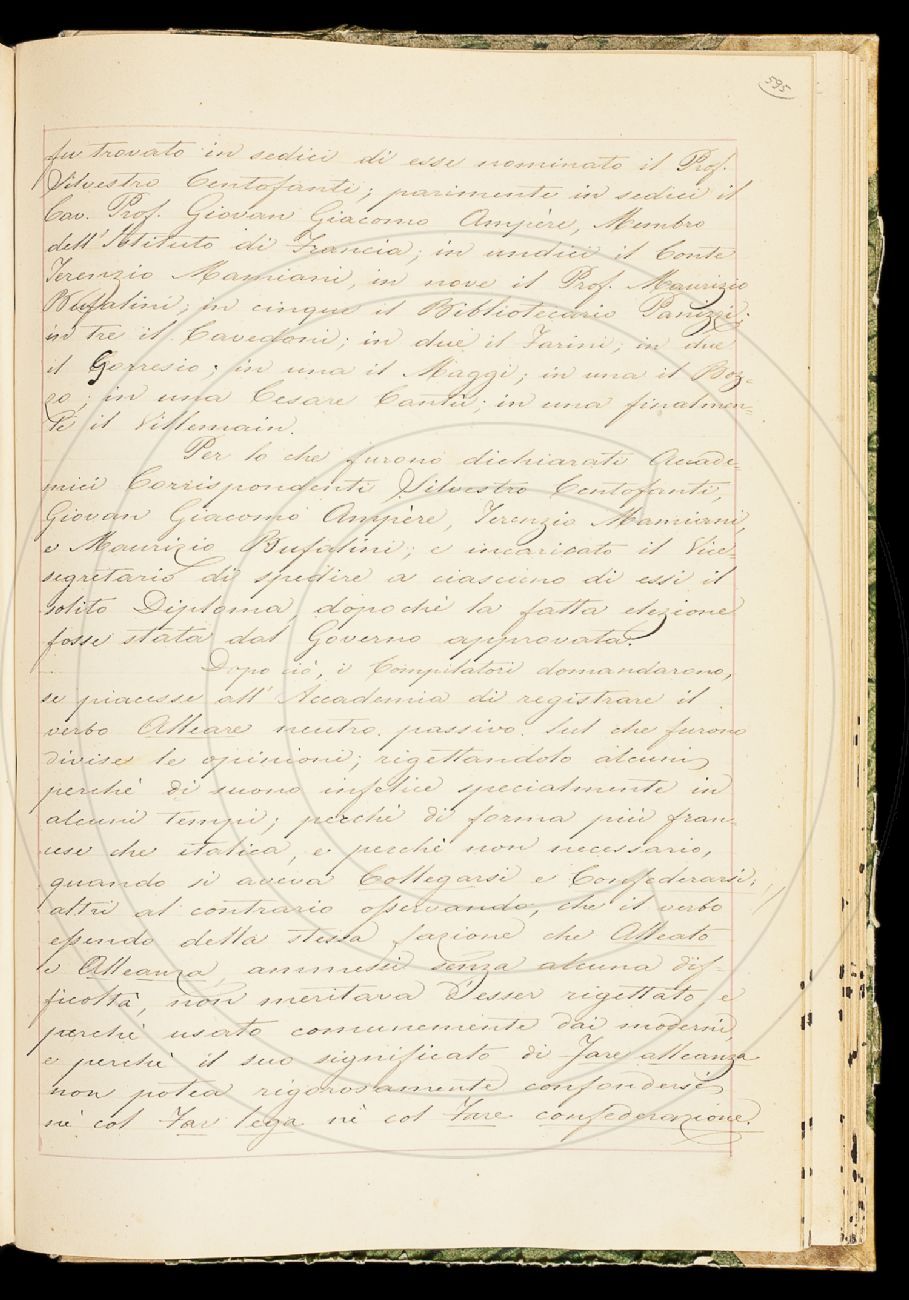 595
fu trovato in sedici di esse nominato il Prof.
Silvestro Centofanti; parimente in sedici il
Cav. Prof. Giovan Giacomo Ampère, Membro
dell'Istituto di Francia; in undici il Conte
Terenzio Mamiani, in nove il Prof. Maurizio
Bufalini; in cinque il Bibliotecario Panizzi;
in tre il Cavedoni; in due il Farini; in due
il Gorresio; in una il Maggi; in una il Boz-
zo; in una Cesare Cantù; in una finalmen=
te il Villemain.
Per lo che furono dichiarati Accade-
mici Corrispondenti Silvestro Centofanti,
Giovan Giacomo Ampère, Terenzio Mamiani,
e Maurizio Bufalini; e incaricato il Vice-
segretario di spedire a ciascuno di essi il
solito Diploma, dopochè la fatta elezione
fosse stata dal Governo approvata.
Dopo ciò, i Compilatori domandarono,
se piacesse all'Accademia di registrare il
verbo Alleare neutro passivo. Sul che furono
divise le opinioni; rigettandolo alcuni
perchè di suono infelice specialmente in
alcuni tempi; perchè di forma più fran-
cese che italica, e perchè non necessario,
quando si aveva Collegarsi e Confederarsi;
altri al contrario osservando, che il verbo
essendo della stessa fazione che Alleato
e Alleanza, ammessi senza alcuna dif-
ficoltà, non meritava d'esser rigettato, e
perchè usato comunemente dai moderni,
e perchè il suo significato di Fare alleanza
non potea rigorosamente confondersi
nè col Far lega nè col Fare confederazione.